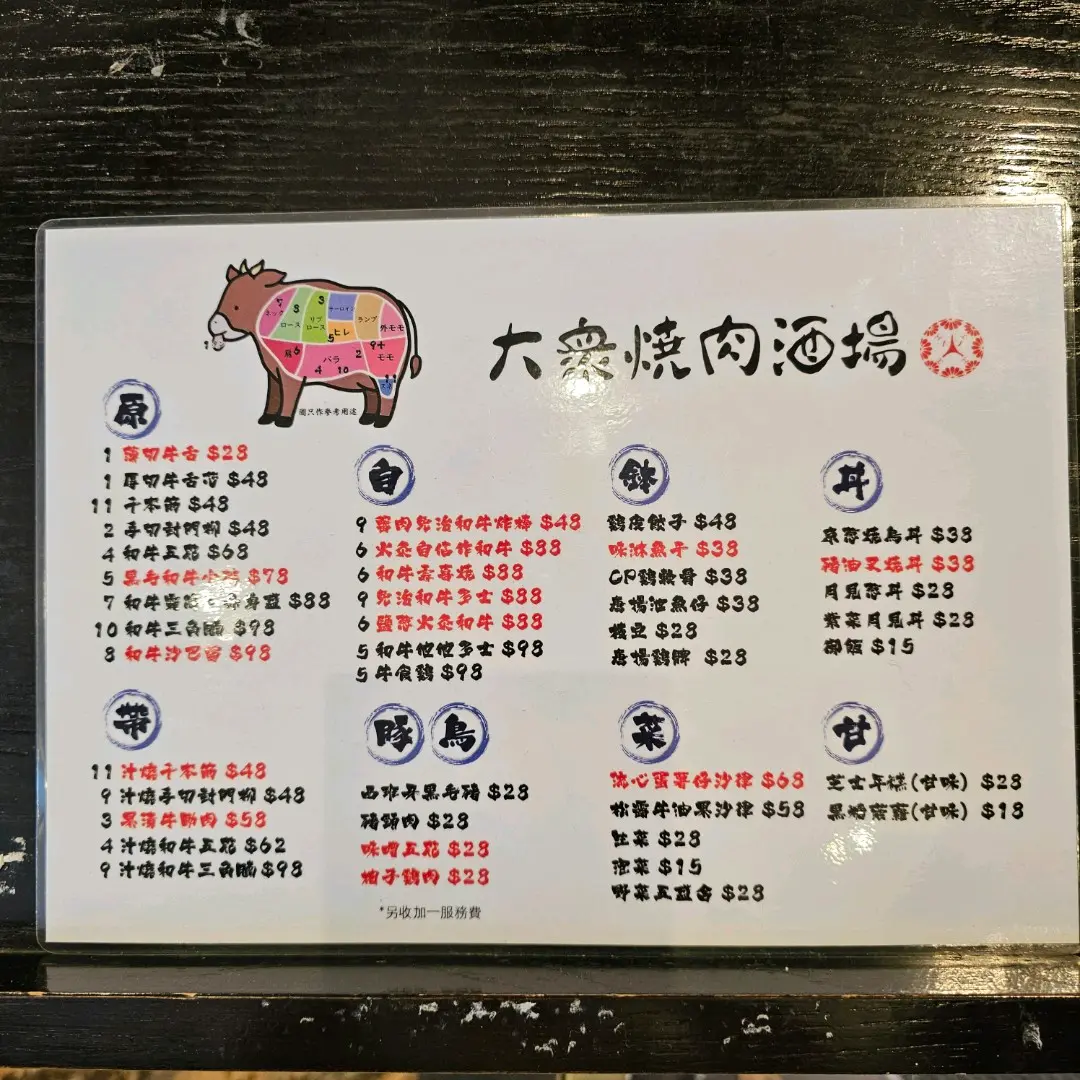 大衆燒肉酒場
ネック
ロース
リブ
ロース
サーロイン
ヒレ
ランプ
外モモ
肩
バラ
モモ
圖只作參考用途
原
1 薄切牛舌 $28
1 厚切牛舌芯 $48
11 千本筋 $48
2 手切封門柳 $48
4 和牛五花 $68
5 黑毛和牛小 $78
7 和牛 $88
10 和牛三角腩 $98
8 和牛沙巴留 $98
自
9 蓉肉免治和牛炸棒 $48
6 火炙自家作和牛 $88
6 和牛壽喜燒 $88
9 免治和牛多士 $88
6 鹽蔥火炙和牛 $88
5 和牛他他多士 $98
5 牛食鷄 $98
鉢
鷄皮餃子 $48
味淋魚干 $38
CP鷄軟骨 $38
唐揚池魚仔 $38
枝豆 $28
唐揚鷄髀 $28
丼
京蔥燒鳥丼 $38
豬油叉燒丼 $38
月見蔥丼 $28
紫菜月見丼 $28
御飯 $15
帶
11 汁燒千本筋 $48
9 汁燒手切封門柳 $48
3 果漬牛肋肉 $58
4 汁燒和牛五花 $62
9 汁燒和牛三角腩 $98
豚 鳥
西班牙黑毛豬 $28
豬頸肉 $28
味噌五花 $28
柚子鷄肉 $28
*另收加一服務費
菜
流心蛋薯仔沙律 $68
松露牛油果沙律 $58
生菜 $28
泡菜 $15
野菜五益合 $28
甘
芝士年糕(甘味) $28
黑糖菠蘿(甘味) $18